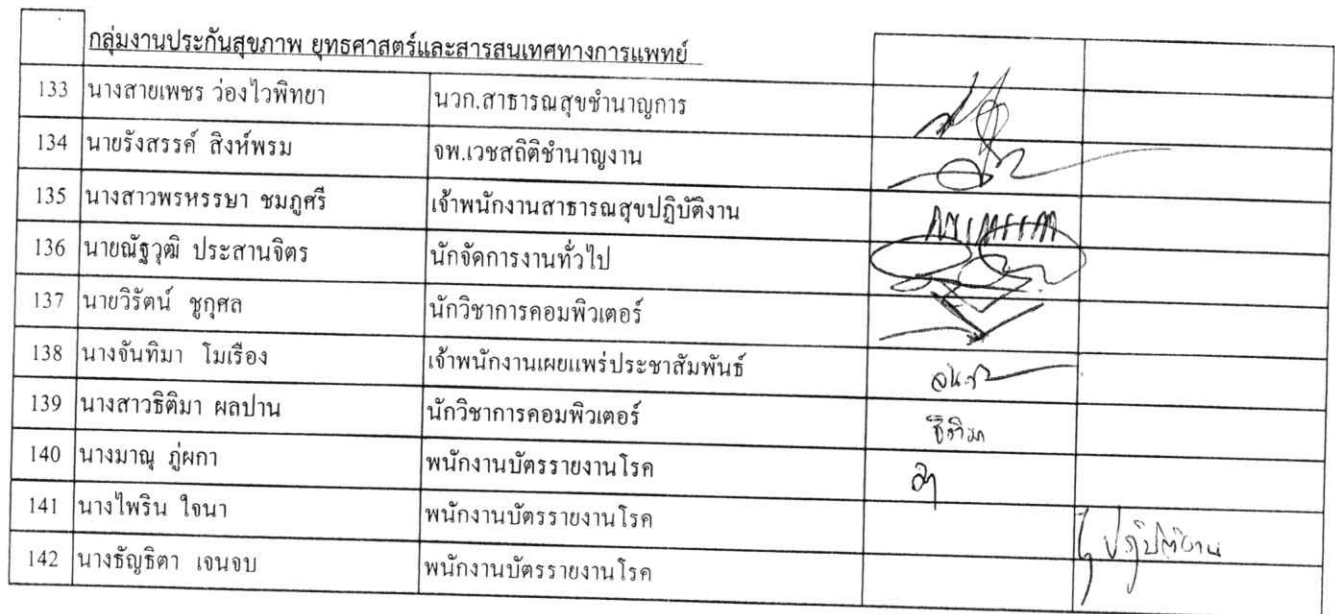 กลุ่มงานประกันสุขภาพ ยุทธศาสตร์และสารสนเทศทางการแพทย์
133 นางสายเพชร ว่องไวพิทยา นวก.สาธารณสุขชำนาญการ
134 นายรังสรรค์ สิงห์พรม จพ.เวชสถิติชำนาญงาน
135 นางสาวพรหรรษา ชมภูศรี เจ้าพนักงานสาธารณสุขปฏิบัติงาน
136 นายณัฐวุฒิ ประสานจิตร นักจัดการงานทั่วไป
137 นายวิรัตน์ ชูกุศล นักวิชาการคอมพิวเตอร์
138 นางจันทิมา โมเรือง เจ้าพนักงานเผยแพร่ประชาสัมพันธ์
139 นางสาวธิติมา ผลปาน นักวิชาการคอมพิวเตอร์ ธิติมา
140 นางมาณุ ภู่ผกา พนักงานบัตรรายงานโรค
141 นางไพริน ใจนา พนักงานบัตรรายงานโรค ปฏิบัติงาน
142 นางธัญธิตา เจนจบ พนักงานบัตรรายงานโรค